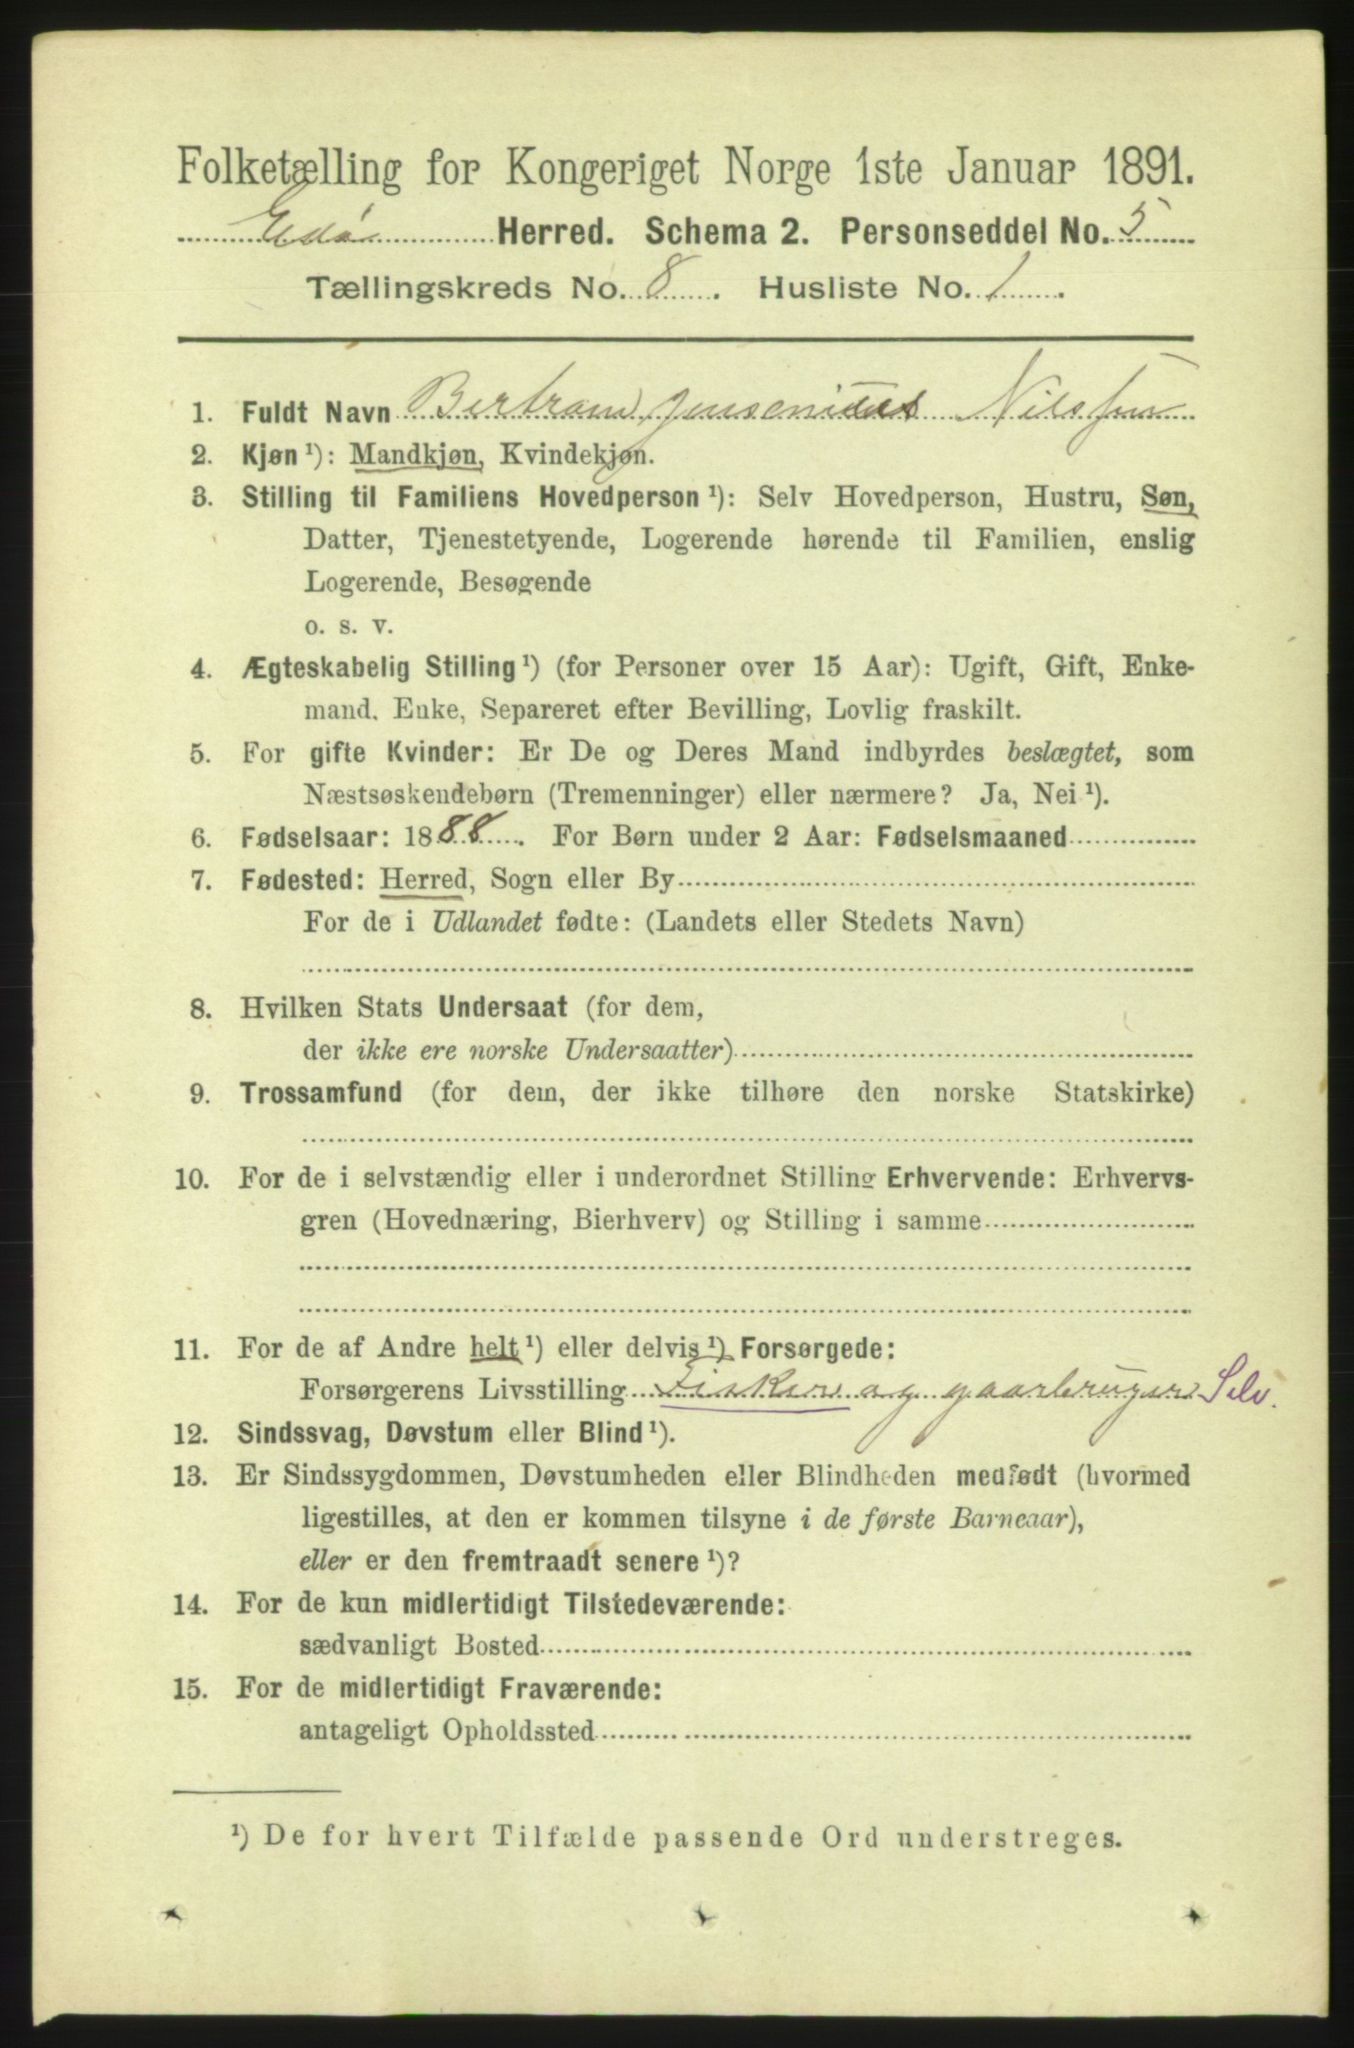 Folketælling for Kongeriget Norge 1ste Januar 1891.
Edø Herred. Schema 2. Personseddel No. 5
Tællingskreds No. 8. Husliste No. 1.
1. Fuldt Navn Bertram Jensenius Nilssen
2. Kjøn ¹): Mandkjøn, Kvindekjøn.
3. Stilling til Familiens Hovedperson ¹): Selv Hovedperson, Hustru, Søn,
Datter, Tjenestetyende, Logerende hørende til Familien, enslig
Logerende, Besøgende
o. s. v.
4. Ægteskabelig Stilling ¹) (for Personer over 15 Aar): Ugift, Gift, Enke-
mand, Enke, Separeret efter Bevilling, Lovlig fraskilt.
5. For gifte Kvinder: Er De og Deres Mand indbyrdes beslægtet, som
Næstsøskendebørn (Tremenninger) eller nærmere? Ja, Nei ¹).
6. Fødselsaar: 1888. For Børn under 2 Aar: Fødselsmaaned
7. Fødested: Herred, Sogn eller By
For de i Udlandet fødte: (Landets eller Stedets Navn)
8. Hvilken Stats Undersaat (for dem,
der ikke ere norske Undersaatter)
9. Trossamfund (for dem, der ikke tilhøre den norske Statskirke)
10. For de i selvstændig eller i underordnet Stilling Erhvervende: Erhvervs-
gren (Hovednæring, Bierhverv) og Stilling i samme
11. For de af Andre helt ¹) eller delvis ¹) Forsørgede:
Forsørgerens Livsstilling Fisker og gaarbruger Selv.
12. Sindssvag, Døvstum eller Blind ¹).
13. Er Sindssygdommen, Døvstumheden eller Blindheden medfødt (hvormed
ligestilles, at den er kommen tilsyne i de første Barneaar),
eller er den fremtraadt senere ¹)?
14. For de kun midlertidigt Tilstedeværende:
sædvanligt Bosted
15. For de midlertidigt Fraværende:
antageligt Opholdssted
¹) De for hvert Tilfælde passende Ord understreges.